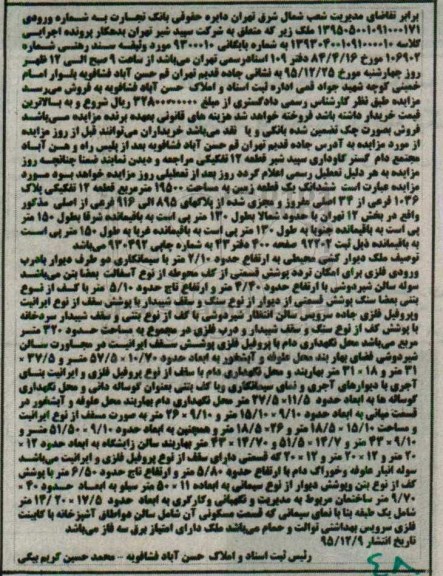 برابر تقاضای مدیریت شعب شمال شرق تهران دایره حقوقی بانک تجارت به شماره ورودی
۱۳۹۵۰۵۰۰۱۰۹۱۰۰۰۱۷۱ ملک زیر که متعلق به شرکت سپید شیر تهران بدهکار پرونده اجرایی
کلاسه ۱۳۹۳۰۴۰۰۱۰۹۱۰۰۰۰۱۰ به شماره بایگانی ۹۳۰۰۰۱۰ مورد وثیقه سند رهنی شماره
۱۰۶۹۰۲ مورخ ۸۴/۴/۱۶ دفتر ۱۰۹ اسنادرسمی تهران می‌باشد از ساعت ۹ صبح الی ۱۲ ظهر
روز چهارشنبه مورخ ۹۵/۱۲/۲۵ به نشانی جاده قدیم تهران قم حسن آباد فشافویه بلوار امام
خمینی کوچه شهید جواد قمی اداره ثبت اسناد و املاک حسن آباد فشافویه به فروش می‌رسد
مزایده طبق نظر کارشناس رسمی دادگستری از مبلغ ۳۲۸۰۰۰۰۰۰۰۰ ریال شروع و به بالاترین
قیمت خریدار داشته باشد فروخته خواهد شد هزینه های قانونی بعهده برنده مزایده می‌باشد
فروش بصورت چک تضمین شده بانکی و یا نقد می‌باشد خریداران می‌توانند قبل از روز مزایده
از مورد مزایده به آدرس جاده قدیم تهران قم حسن آباد فشافویه بعد از پلیس راه
مجتمع دام گستر گاوداری سپید شیر قطعه ۱۲ تفکیکی مراجعه و دیدن نمایند ضمنا چنانچه روز
مزایده به هر دلیل تعطیل رسمی اعلام گردد روز بعد از تعطیلی روز مزایده خواهد بود مورد
مزایده عبارت است ششدانگ یک قطعه زمین به مساحت ۱۹۵۰۰ مترمربع قطعه ۱۲ تفکیکی پلاک
۱۰۳۶ فرعی از ۳۴ اصلی مفروز و مجزی شده از پلاکهای ۸۹۵ الی ۹۱۶ فرعی از اصلی مذکور
واقع در بخش ۱۲ تهران با حدود شمالا بطول ۱۳۰ متر پی است به باقیمانده شرقا بطول ۱۵۰ متر
پی است به باقیمانده جنوبا به طول ۱۳۰ متر پی است به باقیمانده غربا به طول ۱۵۰ متر پی است
به باقیمانده ذیل ثبت ۹۲۲۰۲ صفحه ۴۰۰ دفتر ۴۳ به شماره چاپی ۹۳۰۴۹۲ می‌باشد
توصیف ملک دیوار کشی محیطی به ارتفاع حدود ۲/۱۰ متر با سیمانکاری دو طرف دیوار بادرب
ورودی فلزی برای امکان تردد پوشش قسمتی از کف محوطه از نوع آسفالت بعضا بتن می‌باشد
سوله سالن شیردوشی با ارتفاع حدود ۴/۴۰ متر و ارتفاع تاج حدود ۵/۱۰ متر با کف از نوع
بتنی بعضا سنگ پوشش قسمتی از دیوار از نوع سنگ و سقف شیبدار با پوشش سقف از نوع ایرانیت
وپروفیل فلزی جاده سرویس سالن انتظار شیردوشی با کف از نوع بتنی و سقف شیبدار سردخانه
با پوشش کف از نوع سنگ و سقف شیبدار و درب فلزی در مجموع به مساحت حدود ۳۲۰ متر
مربع می‌باشد محل نگهداری دام با پروفیل فلزی پوشش سقف ایرانیت در مجاورت سالن
شیردوشی فضای بهار بند محل علوفه و آبشخور به ابعاد حدود ۱۰/۷۰ × ۵۷/۵ متر و ۳۷/۵ ×
۳۱ متر و ۱۸ × ۳۱ متر بهاربند و محل نگهداری دام با سقف از نوع پروفیل فلزی و ایرانیت بنای
آجری با دیوارهای آجری و نمای سیمانکاری وبا کف بتنی بعنوان گوساله دانی و محل نگهداری
گوساله ها به ابعاد حدود ۱۱/۵۰ × ۲۷/۵ متر محل نگهداری دام بهاربند محل علوفه و آبشخور در
قسمت میانی به ابعاد حدود ۹/۱۰ × ۱۵/۱۰ متر و ۹/۱۰ × ۲۶ متر به صورت مسقف از نوع ایرانیت
و مساحت ۱۵/۱۰ × ۱۸/۵ متر و ۲۶ × ۱۸/۵ متر و همچنین به ابعاد ۹/۱۰ × ۵۱/۵۰ متر و
۹/۱۰ × ۴۳ متر و ۱۴/۷ × ۵۱/۵ و ۱۴/۷۰ × ۴۳ متر بهاربند سالن زایشگاه به ابعاد حدود ۱۲ ×
۲۰ متر و ۱۲ × ۲۰ متر و ۱۲ × ۲۰ که قسمتی دارای سقف از نوع پروفیل فلزی و ایرانیت می‌باشد
سوله انبار علوفه وخوراک دام با ارتفاع حدود ۵/۸۰ متر و ارتفاع تاج حدود ۶/۵۰ متر با پوشش
کف از نوع بتن وپوشش دیوار از نوع سیمانی به ابعاده ۱۱ × ۵۰ متر سیلو به ابعاد حدود ۴۰ ×
۹/۷۰ متر ساختمان مربوط به مدیریت و نگهبانی وکارگری به ابعاد حدود ۱۷/۵ × ۱۴/۲۰ متر
شامل یک طبقه بنا با نمای سیمانی که قسمت مسکونی آن شامل سالن دواطاق آشپزخانه با کابینت
فلزی سرویس بهداشتی توالت و حمام می‌باشد ملک دارای امتیاز برق سه فاز می‌باشد
تاریخ انتشار ۹۵/۱۲/۹
رئیس ثبت اسناد و املاک حسن آباد فشافویه - محمد حسین کریم بیگی